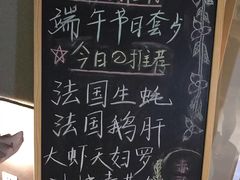 推荐
端午节日套夕
☆今日の推荐
法国生蚝
法国鹅肝
大虾天妇罗